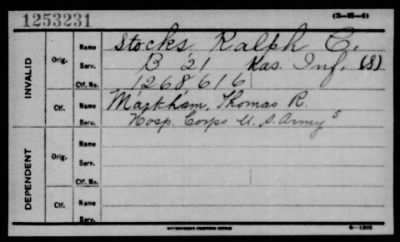 1253231
(3-86-4)
INVALID
Orig. Name Stocks, Ralph C.
Serv. B 21 Kas. Inf. (S)
Ctf. No. 1268616
Ctf. Name Markham, Thomas R.
Serv. Hosp. Corps U.S. Army S
DEPENDENT
Orig. Name
Serv.
Ctf. No.
Ctf. Name
Serv.
GOVERNMENT PRINTING OFFICE